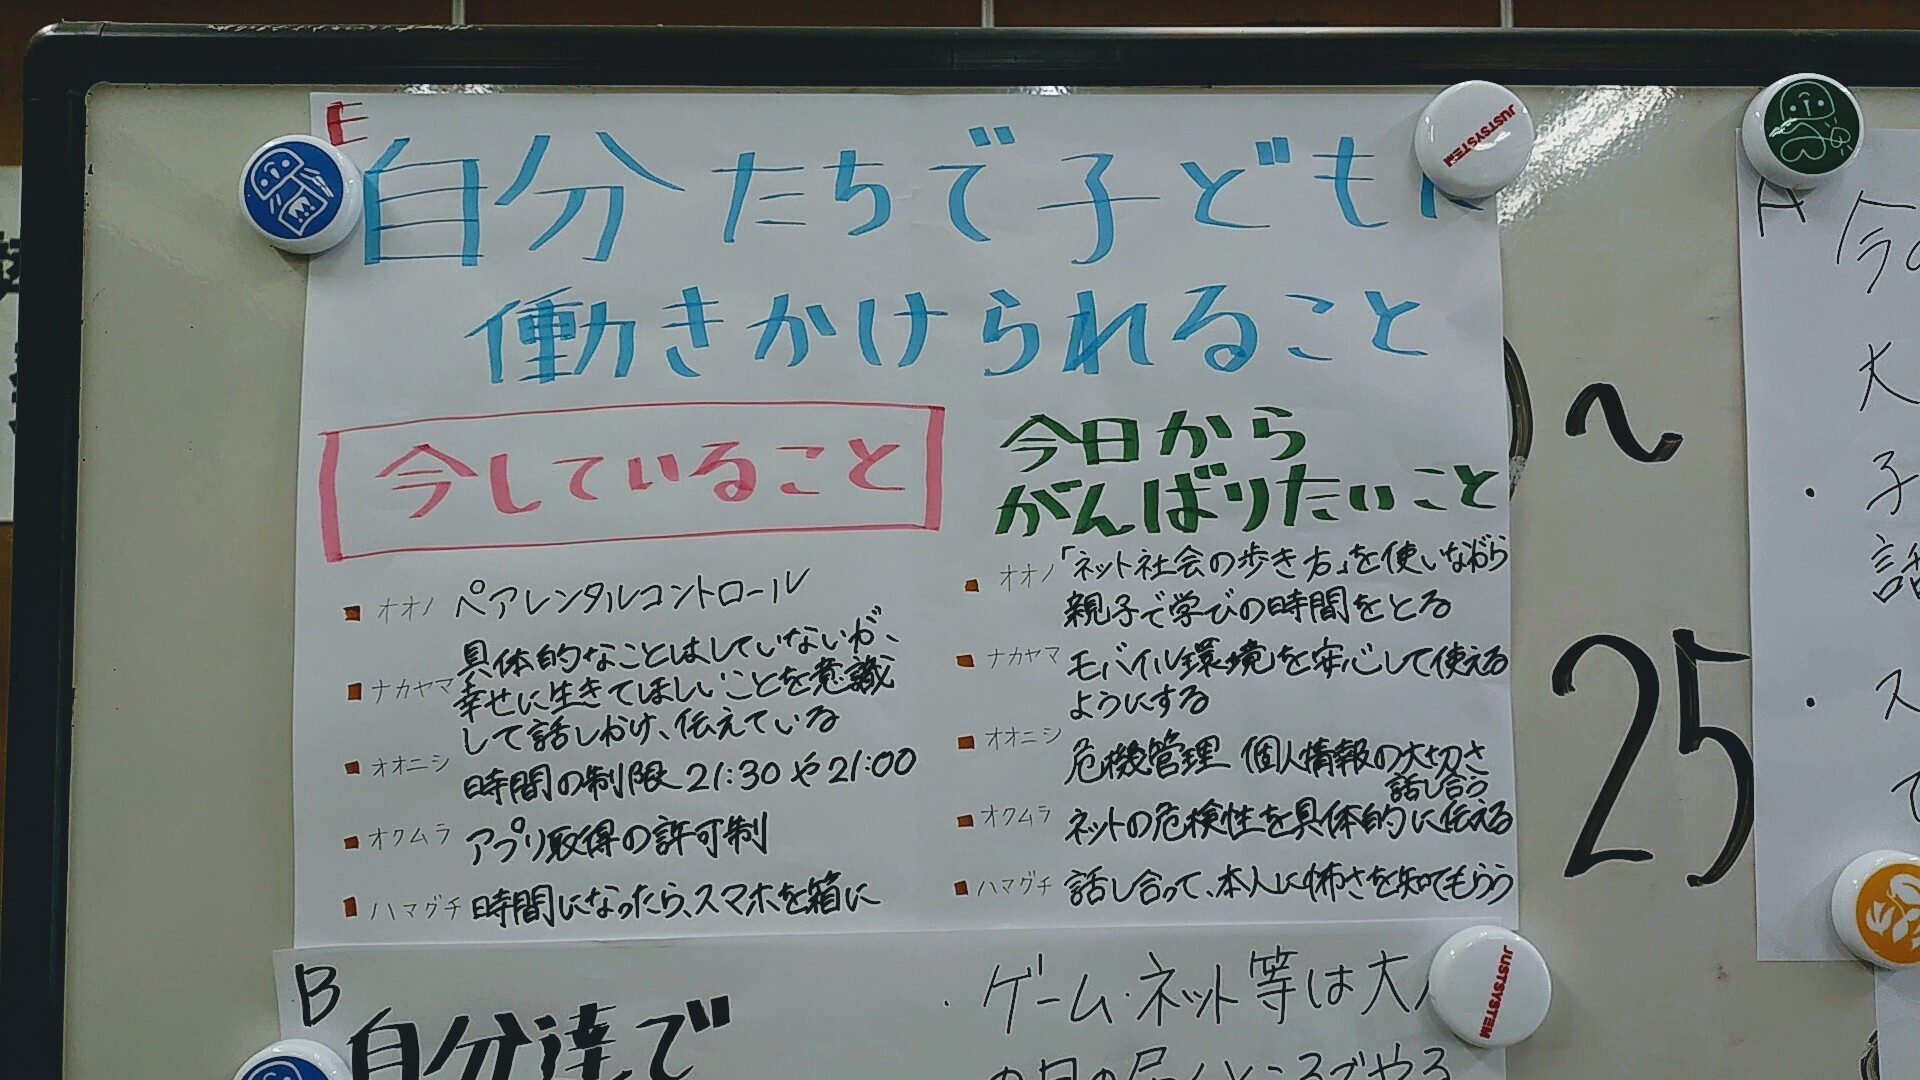 E
自分たちで子ども
働きかけられること
今していること
オオノ ペアレンタルコントロール
ナカヤマ 具体的なことはしていないが、
幸せに生きてほしいことを意識
して話しかけ、伝えている
オオニシ 時間の制限 21:30や21:00
オクムラ アプリ取得の許可制
ハマグチ 時間になったら、スマホを箱に
今日から
がんばりたいこと
オオノ 「ネット社会の歩き方」を使いながら
親子で学びの時間をとる
ナカヤマ モバイル環境を安心して使える
ようにする
オオニシ 危機管理 個人情報の大切さ
話し合う
オクムラ ネットの危険性を具体的に伝える
ハマグチ 話し合って、本人に怖さを知てもらう
JUSTSYSTEM
〜
25
A
今
大
・子
話
・ス
B
自分達で
・ゲーム・ネット等は大
JUSTSYSTEM